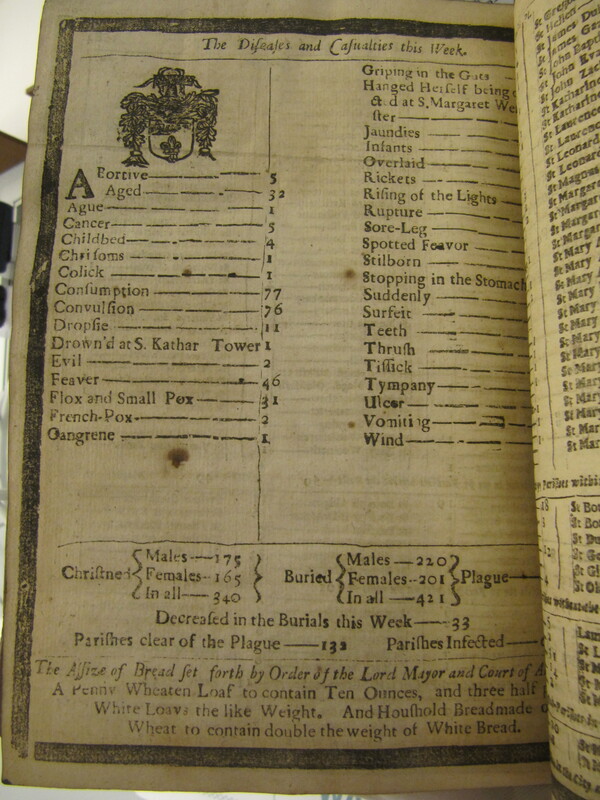 The Diseases and Casualties this Week.
Abortive 5
Aged 32
Ague 1
Cancer 5
Childbed 4
Chrisoms 1
Colick 1
Consumption 77
Convulsion 76
Dropsie 11
Drown'd at S. Kathar Tower 1
Evil 2
Feaver 46
Flox and Small Pox 31
French-Pox 2
Gangrene 1
Griping in the Guts
Hanged Herself being
&c.d at S. Margaret We
ster
Jaundies
Infants
Overlaid
Rickets
Rising of the Lights
Rupture
Sore-Leg
Spotted Feavor
Stilborn
Stopping in the Stomach
Suddenly
Surfeit
Teeth
Thrush
Tissick
Tympany
Ulcer
Vomiting
Wind
Christned { Males—175 Females--165 In all—340 }
Buried { Males—220 Females--201 In all—421 } Plague
Decreased in the Burials this Week—33
Parishes clear of the Plague—132 Parishes Infected
The Assize of Bread set forth by Order of the Lord Mayor and Court of A
A Penny Wheaten Loaf to contain Ten Ounces, and three half
White Loavs the like Weight. And Houshold Bread made o
Wheat to contain double the weight of White Bread.
St John Zac
St Katharin
St Katharin
St Laurence
St Laurence
St Leonard
St Leonard
St Magnus
St Margare
St Margare
St Margare
St Mary A
St Mary
St Mary
St Mary
St Mary
St Mary